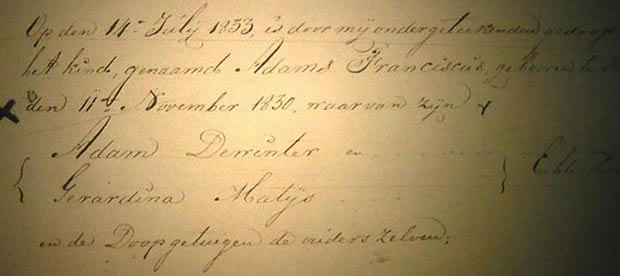 Op den 14n July 1833, is door mij ondergeteekenden gedoopt
het kind, genaamd Adams Franciscus, gebooren
den 11n November 1830, waarvan zijn
Adam Derwinter en
Gerardina Matijs
en de Doopgetuigen de ouders zelven;